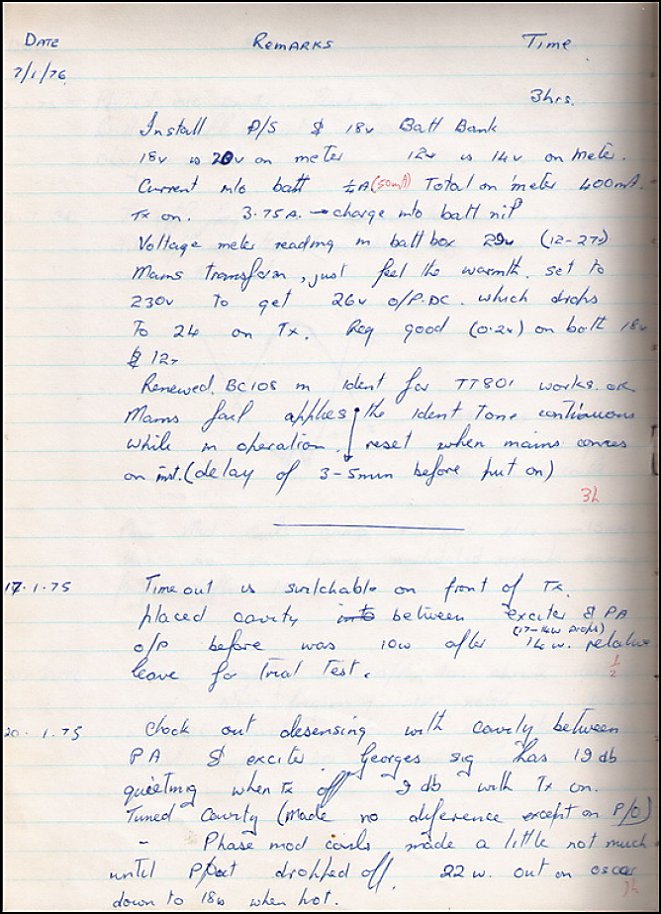 DATE REMARKS Time
7/1/76
3hrs.
Install P/S & 18v Batt Bank
18v is 20v on meter 12v is 14v on meter.
Current into batt ¼A (50mA) Total on meter 400mA.
Tx on. 3.75A. → charge into batt nil
Voltage meter reading in batt box 29v (12-27v)
Mains transform, just feel the warmth. set to
230v to get 26v O/P. DC. which drops
To 24 on Tx. Reg good (0.2v) on both 18v
& 12v
Renewed BC108 in ident for TT801 works. ok
Mains fail applies the ident tone continuous
while in operation. reset when mains comes
on inst. (delay of 3-5min before put on)
3h
17.1.75 Time out is switchable on front of Tx.
placed cavity into between exciter & PA
(17-14w drops)
o/p before was 10w after 14w. relative
leave for Trial Test. 1/2
20.1.75 Check out desensing with cavity between
PA & exciter. Georges sig has 19db
quieting when Tx off 9db with Tx on.
Tuned Cavity (made no diference except on P/O)
- Phase mod coils made a little not much
until P/out dropped off. 22w. out on oscar
down to 18w when hot.